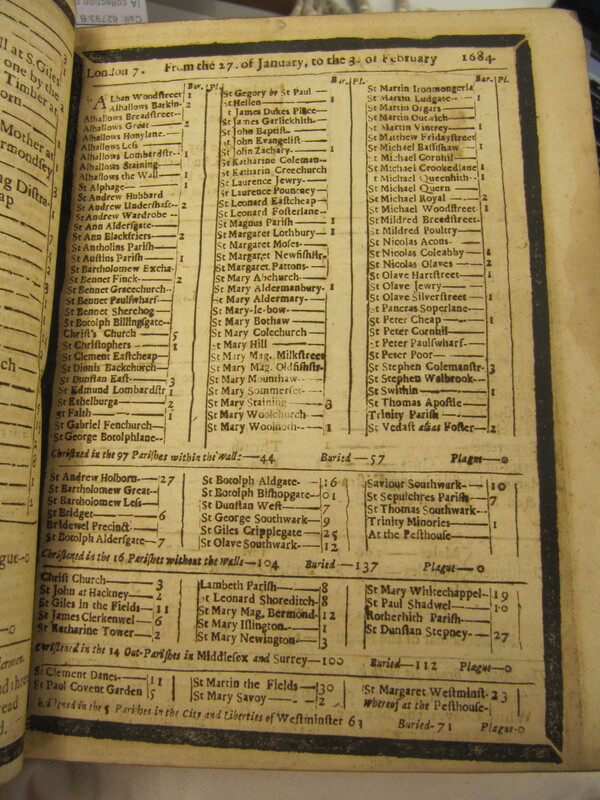 Call: 62793/B
London 7. From the 27. of January, to the 3. of February 1684.
Bur. Pl.
ALban Woodſtreet 1
Alhallows Barkin- 2
Alhallows Breadſtreet--
Alhallows Great 2
Alhallows Honylane.
Alhallows Leſs
Alhallows Lombardſtr- 1
Alhallows Staining
Alhallows the Wall 1
St Alphage 1
St Andrew Hubbard
St Andrew Underſhaft- 2
St Andrew Wardrobe --
St Ann Alderſgate-
St Ann Blackfriers 2
St Antholins Pariſh
St Auſtins Pariſh 1
St Bartholomew Excha-
St Bennet Finck 2
St Bennet Gracechurch-
St Bennet Paulſwharf-
St Bennet Sherehog
St Botolph Billingſgate-
Chriſt's Church 5
St Chriſtophers 1
St Clement Eaſtcheap
St Dionis Backchurch
St Dunſtan Eaſt- 3
St Edmund Lombardſtr 1
St Ethelburga 2
St Faith 1
St Gabriel Fenchurch
St George Botolphlane-
Bur. Pl.
St Gegory by St Paul
St Hellen 1
St James Dukes Place
St James Garlickhith
St John Baptiſt-
St John Evangeliſt
St John Zachary 1
St Katharine Coleman-
St Katharin Creechurch
St Laurence Jewry-
St Laurence Pountney
St Leonard Eaſtcheap
St Leonard Foſterlane-
St Magnus Pariſh 1
St Margaret Lothbury 1
St Margaret Moſes-
St Margaret Newfiſhſtr
St Margaret Pattons-
St Mary Abchurch
St Mary Aldermanbury. 1
St Mary Aldermary-
St Mary-le-bow
St Mary Bothaw
St Mary Colechurch
St Mary Hill
St Mary Mag. Milkſtreet
St Mary Mag. Oldfiſhſtr-
St Mary Mounthaw-
St Mary Sommerſet-
St Mary Staining 3
St Mary Woolchurch
St Mary Woolnoth- 1
Bur. Pl.
St Martin Ironmongerla
St Martin Ludgate- 1
St Martin Orgars
St Martin Outwich
St Martin Vintrey- 1
St Matthew Fridayſtreet
St Michael Baſſiſhaw 1
St Michael Cornhil
St Michael Crookedlane 1
St Michael Queenhith- 1
St Michael Quern
St Michael Royal 2
St Michael Woodſtreet 1
St Mildred Breadſtreet-
St Mildred Poultry
St Nicolas Acons-
St Nicolas Coleabby
St Nicolas Olaves 2
St Olave Hartſtreet 1
St Olave Jewry
St Olave Silverſtreet 1
St Pancras Soperlane-
St Peter Cheap 1
St Peter Cornhil
St Peter Paulſwharf-
St Peter Poor
St Stephen Colemanſtr- 3
St Stephen Walbrook-
St Swithin 1
St Thomas Apoſtle
Trinity Pariſh
St Vedaſt alias Foſter 2
Chriſtned in the 97 Pariſhes within the Walls-44 Buried-57 Plague-0
St Andrew Holborn- 27
St Bartholomew Great-
St Bartholomew Leſs
St Bridget 6
Bridewel Precinct-
St Botolph Alderſgate- 7
St Botolph Aldgate- 16
St Botolph Biſhopgate- 01
St Dunſtan Weſt 7
St George Southwark 9
St Giles Cripplegate 25
St Olave Southwark- 12
Saviour Southwark- 10
St Sepulchres Pariſh 7
St Thomas Southwark-
Trinity Minories 1
At the Peſthouſe
Chriſtned in the 16 Pariſhes without the Walls-104 Buried-137 Plague-0
Chriſt Church 3
St John at Hackney- 2
St Giles in the Fields- 11
St James Clerkenwel 6
St Katharine Tower 2
Lambeth Pariſh 8
St Leonard Shoreditch 8
St Mary Mag, Bermond- 12
St Mary Iſlington 1
St Mary Newington 3
St Mary Whitechappel 19
St Paul Shadwel 10
Rotherhith Pariſh
St Dunſtan Stepney- 27
Chriſtned in the 14 Out-Pariſhes in Middleſex and Surrey-100 Buried-112 Plague-0
St Clement Danes 11
St Paul Covent Garden 5
St Martin the Fields 30
St Mary Savoy 2
St Margaret Weſtminſt- 23
whereof at the Peſthouſe-
Chriſtned in the 5 Pariſhes in the City and Liberties of Weſtminſter 63 Buried-71 Plague-0